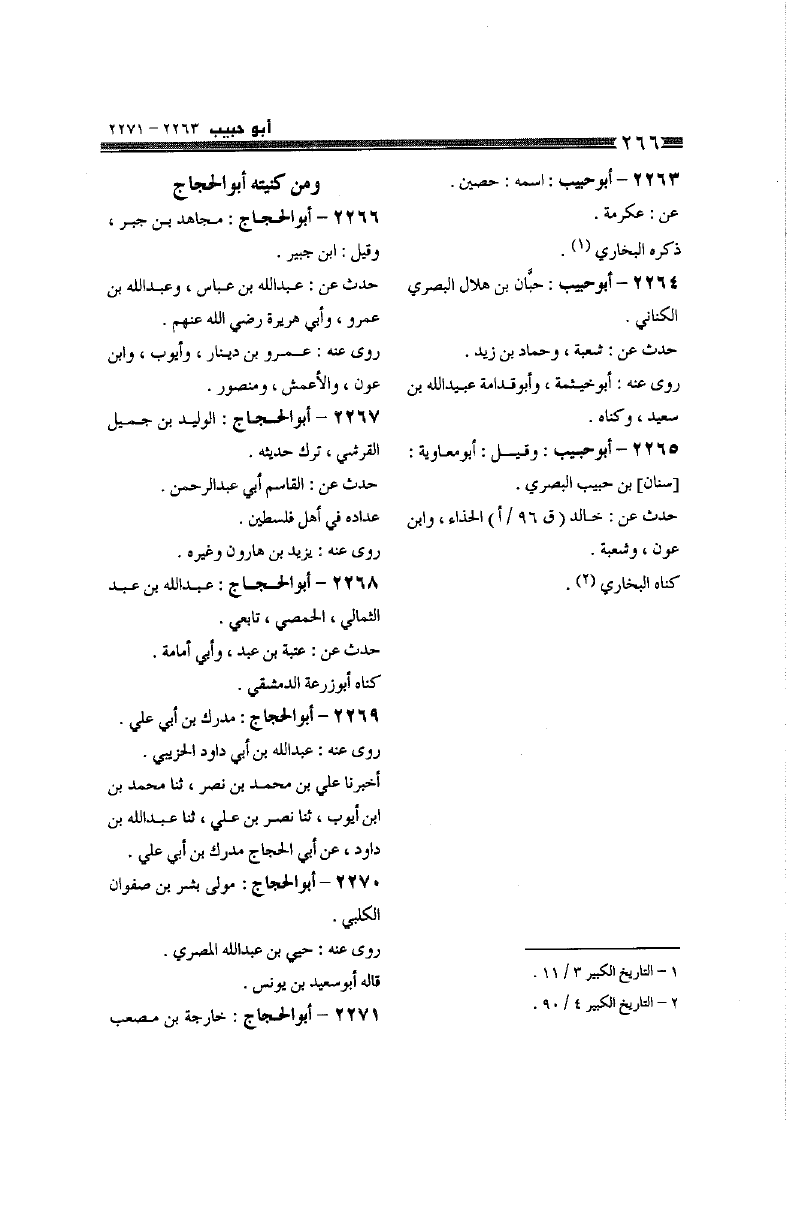 أبو حبيب ٢٢٦٣ - ٢٢٧١
٢٦٦
٢٢٦٣ - أبو حبيب : اسمه : حصين .
عن : عكرمة .
ذكره البخاري (١) .
٢٢٦٤ - أبو حبيب : حبَّان بن هلال البصري
الكناني .
حدث عن : شعبة ، وحماد بن زيد .
روى عنه : أبو خيثمة ، وأبو قدامة عبيدالله بن
سعيد ، وكناه .
٢٢٦٥ - أبو حبيب : وقيل : أبو معاوية :
[سنان] بن حبيب البصري .
حدث عن : خالد ( ق ٩٦ / أ ) الحذاء ، وابن
عون ، وشعبة .
كناه البخاري (٢) .
١ - التاريخ الكبير ٣ / ١١ .
٢ - التاريخ الكبير ٤ / ٩٠ .
ومن كنيته أبو الحجاج
٢٢٦٦ - أبو الحجاج : مجاهد بن جبر ،
وقيل : ابن جبير .
حدث عن : عبدالله بن عباس ، وعبدالله بن
عمرو ، وأبي هريرة رضي الله عنهم .
روى عنه : عمرو بن دينار ، وأيوب ، وابن
عون ، والأعمش ، ومنصور .
٢٢٦٧ - أبو الحجاج : الوليد بن جميل
القرشي ، ترك حديثه .
حدث عن : القاسم أبي عبدالرحمن .
عداده في أهل فلسطين .
روى عنه : يزيد بن هارون وغيره .
٢٢٦٨ - أبو الحجاج : عبدالله بن عبد
الثمالي ، الحمصي ، تابعي .
حدث عن : عتبة بن عبد ، وأبي أمامة .
كناه أبو زرعة الدمشقي .
٢٢٦٩ - أبو الحجاج : مدرك بن أبي علي .
روى عنه : عبدالله بن أبي داود الخريبي .
أخبرنا علي بن محمد بن نصر ، ثنا محمد بن
ابن أيوب ، ثنا نصر بن علي ، ثنا عبدالله بن
داود ، عن أبي الحجاج مدرك بن أبي علي .
٢٢٧٠ - أبو الحجاج : مولى بشر بن صفوان
الكلبي .
روى عنه : حيي بن عبدالله المصري .
قاله أبو سعيد بن يونس .
٢٢٧١ - أبو الحجاج : خارجة بن مصعب